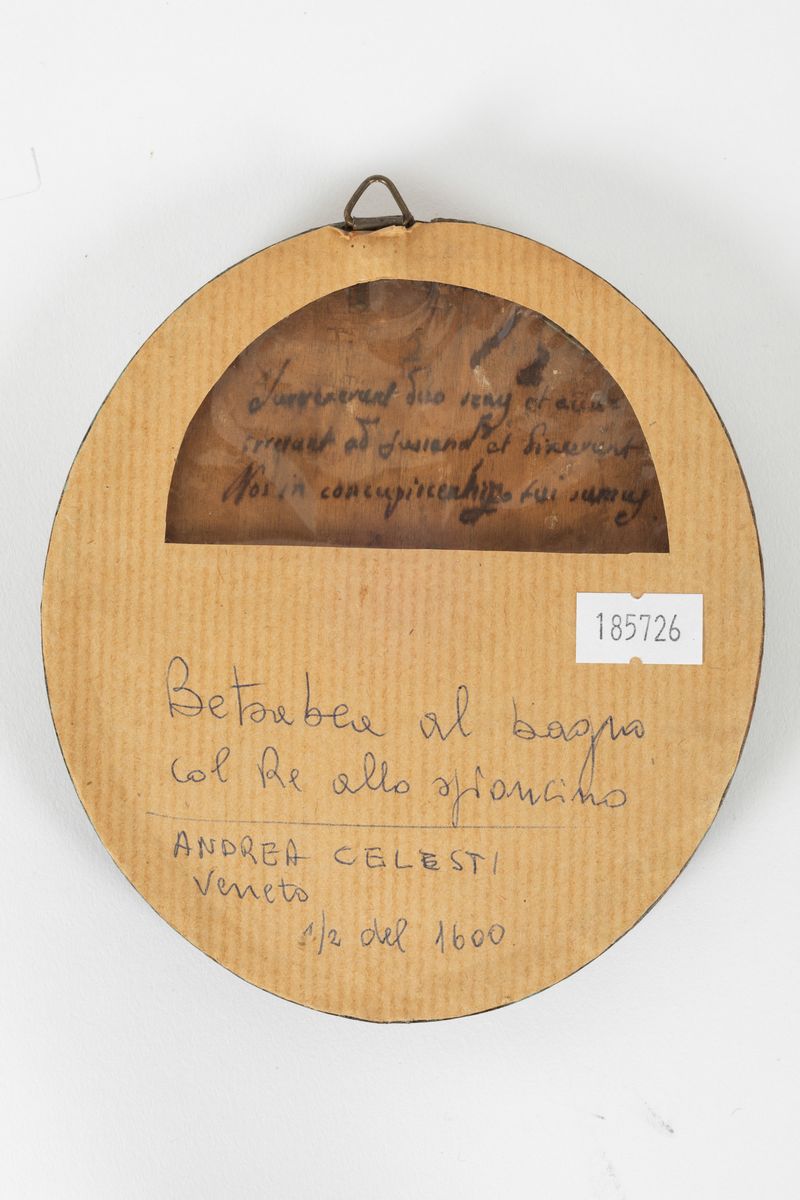 Surrexerunt duo et
et dixerunt
Nos in tui sumus
185726
Betsabea al bagno
col Re allo spioncino
ANDREA CELESTI
Veneto
1/2 del 1600